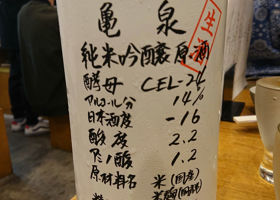 亀泉
純米吟醸原酒
酵母 CEL-24
アルコール分 14%
日本酒度 -16
酸度 2.2
アミノ酸 1.2
原材料名 米(国産)
米麹(国産米)